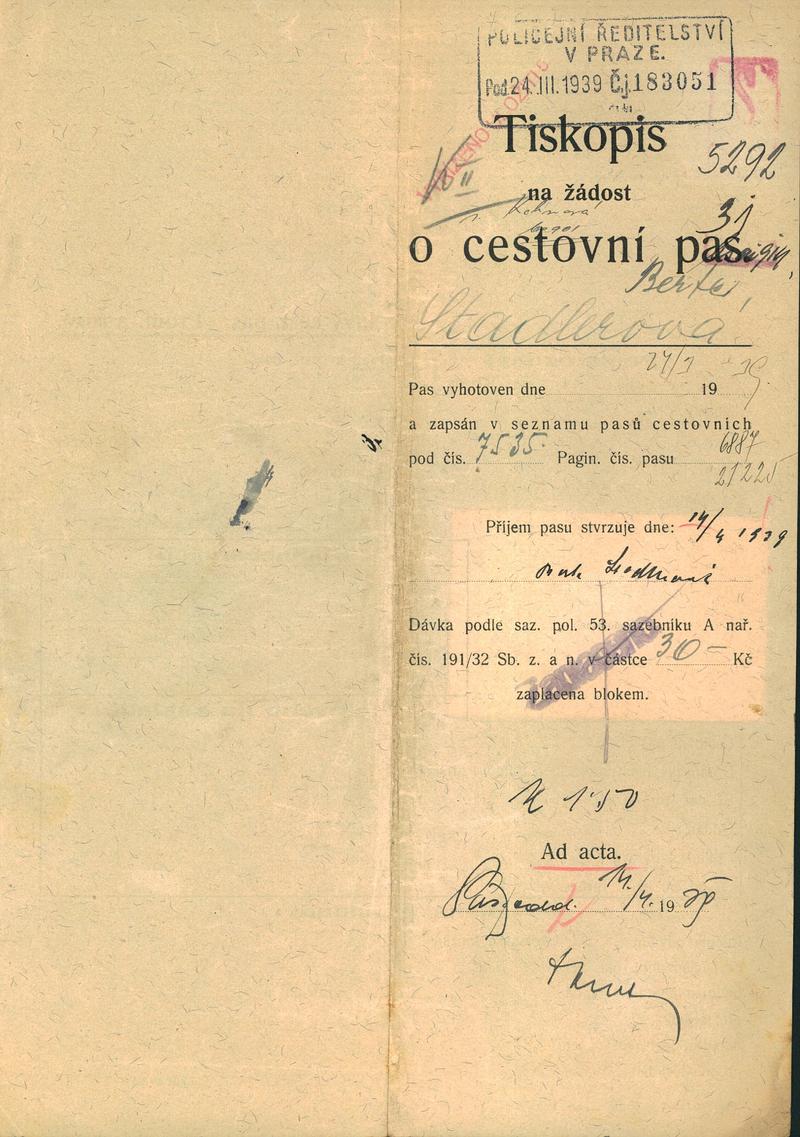 POLICEJNÍ ŘEDITELSTVÍ
V PRAZE.
Pod. 24. III. 1939 Č.j. 183051
Tiskopis
5292
na žádost
31
o cestovní pas.
Berta
Stadlerová
24/3 39
Pas vyhotoven dne 19
a zapsán v seznamu pasů cestovních
6887
pod čís. 7535 Pagin. čís. pasu
21225
Příjem pasu stvrzuje dne: 14/4 1939
Dávka podle saz. pol. 53. sazebníku A nař.
čís. 191/32 Sb. z. a n. v částce 30 — Kč
zaplacena blokem.
K 1·50
Ad acta.
14./4. 19 39